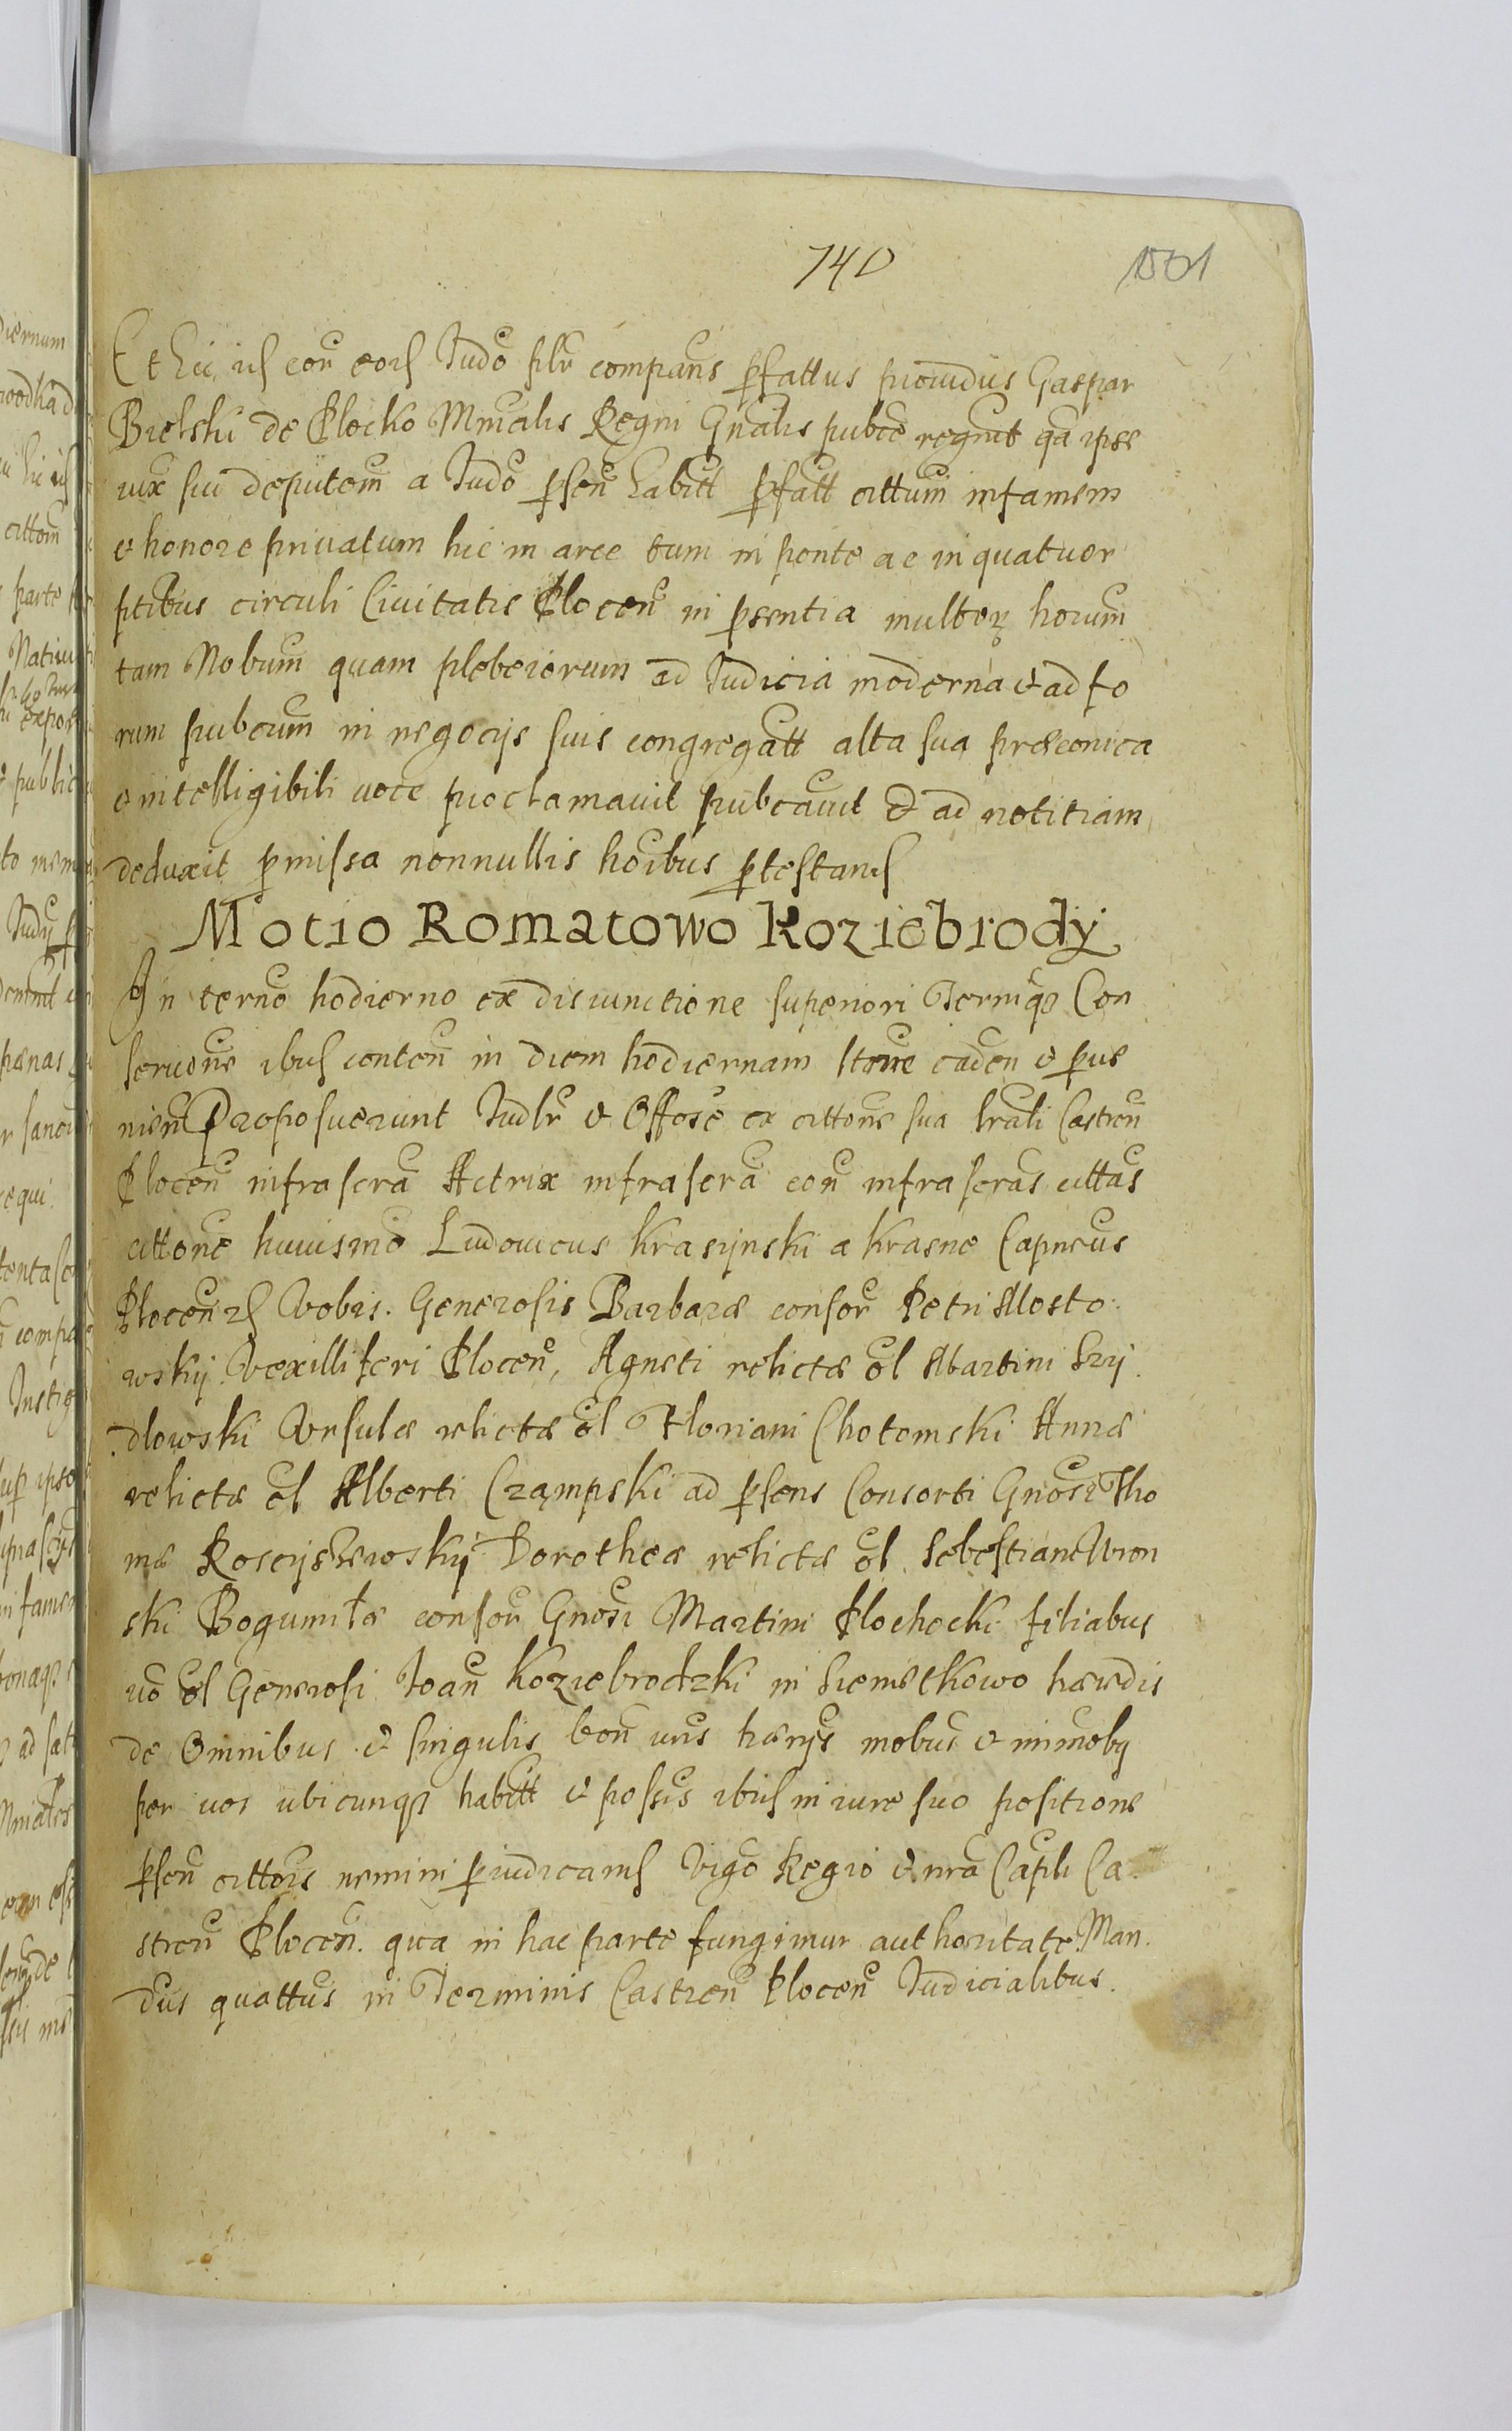 740
1501
Et hic ids corr eods Judō plr comparns pfattus prouidus Gaspar
Bielski de Plocko Mrncalis Regni Gnalis pubce regnit qa ipse
iux sui deputem a Judo psen habitt pfatt cittum infamem
& honore priuatum hic in arce tum in ponte ac in quatuor
ptibus circuli Ciuitatis Plocen in psentia multor hoium
tam Nobum quam plebeiorum ad Judicia moderna & ad fo
rum pubcum in negocijs suis congregatt alta sua præconica
& intelligibili uoce proclamauit pubcauit & ad notitiam
deduxit pmissa nonnullis hoibus ptestans
Motio Romatowo Koziebrody
In terno hodierno ex disiunctione superiori Terniqs Con
seruone ibids conten in diem hodiernam itue caden & pue
nien Proposuerunt Judlr & Offose ex cittone sua lrali Castren
Plocen infrascra Actrix infrascra con infrascras cittas
cittone huiusmo Ludouicus Krasijnski a Krasne Capneus
Plocen Vobis. Generosis Barbaræ consor Petri Mosto
wskij Vexilliferi Plocen, Agneti relictæ ol Martini Szij
dlowski Vrsulæ relictæ ol Floriani Chotomski Annæ
relictæ ol Alberti Czampski ad psens Consorti Gnosi Tho
mæ Rosciszewskij Dorotheæ relictæ ol Sebestiani Wron
ski Bogumiłæ consor Gnosi Martini Plochocki filiabus
uo ol Generosi Joan Koziebrodzki in Siemetkowo hæredis
de Omnibus & singulis bon uris hærijs mobus & immoby
per uos ubicunqs habitt & possis ibids in iure suo positione
psen cittois nemini piudicans Vigo Regio & nra Capli Ca
stren Plocen. qua in hac parte fungimur authoritate Man
dus quattus in Terminis Castren Plocen Judicialibus.